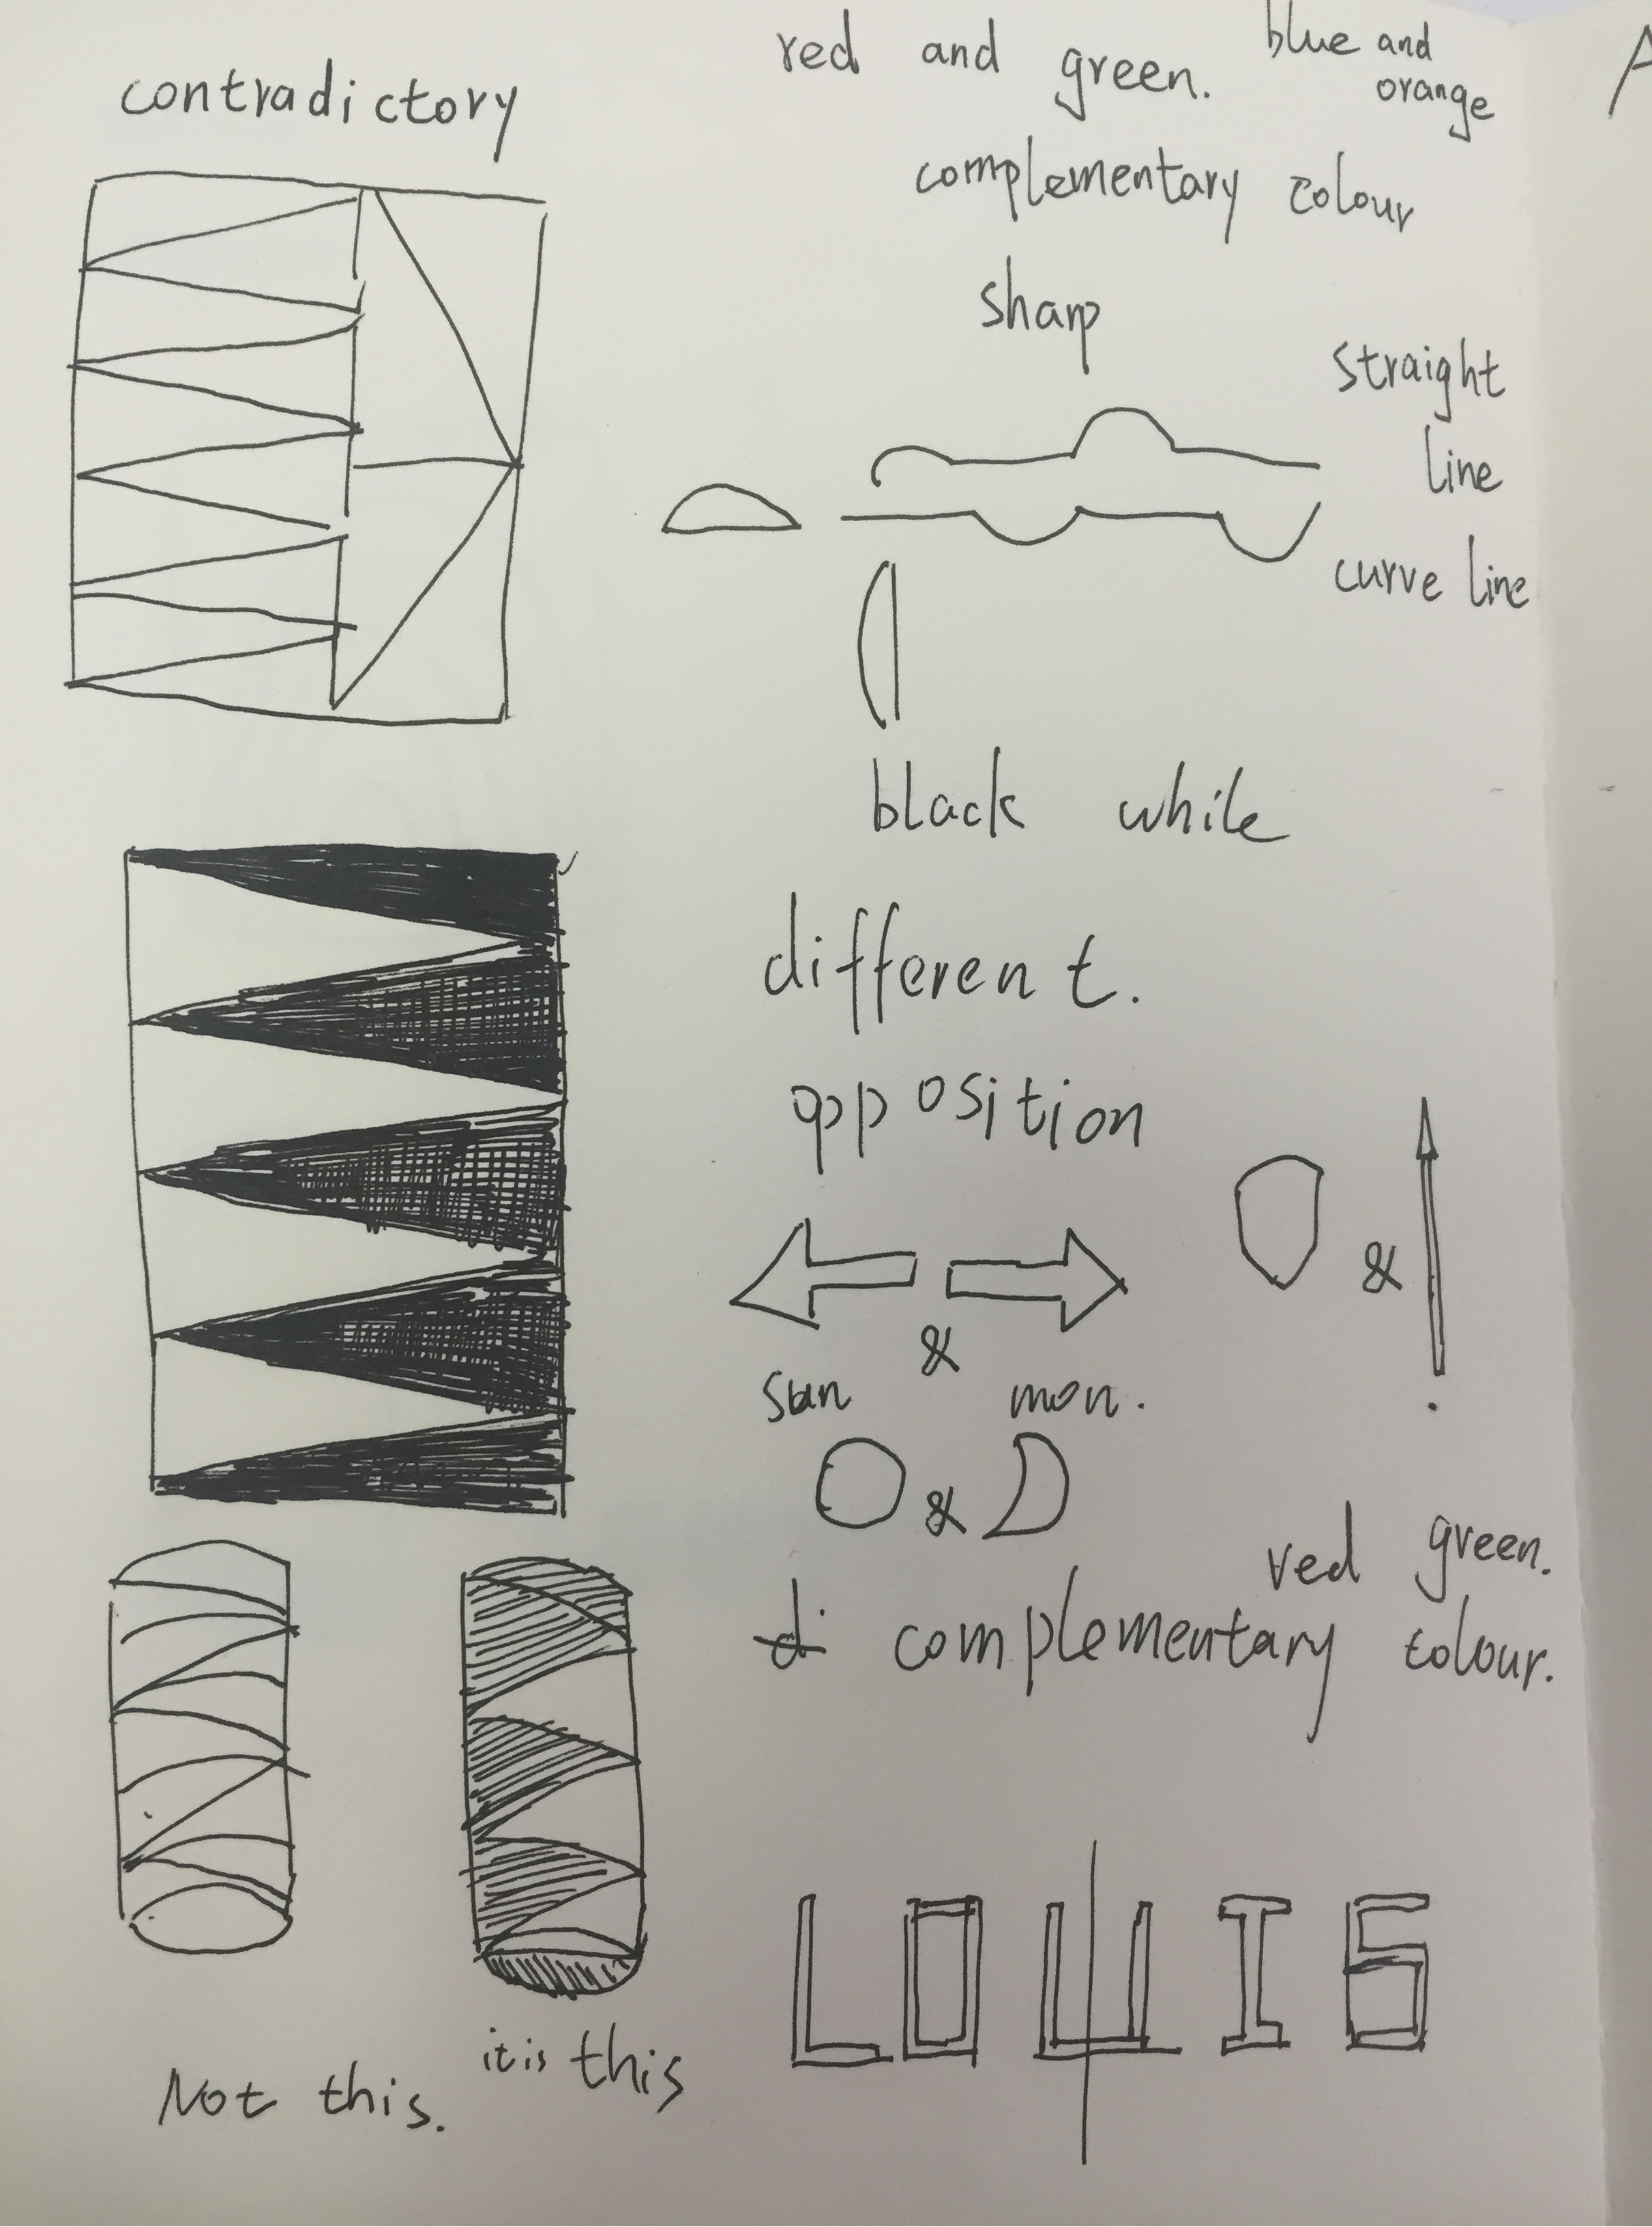 contradictory
red and green.
blue and
orange
complementary colour
sharp
straight
line
curve line
black while
different.
opposition
&
&
sun mon.
&
red green.
complementary colour.
LOUIS
Not this.
it is this